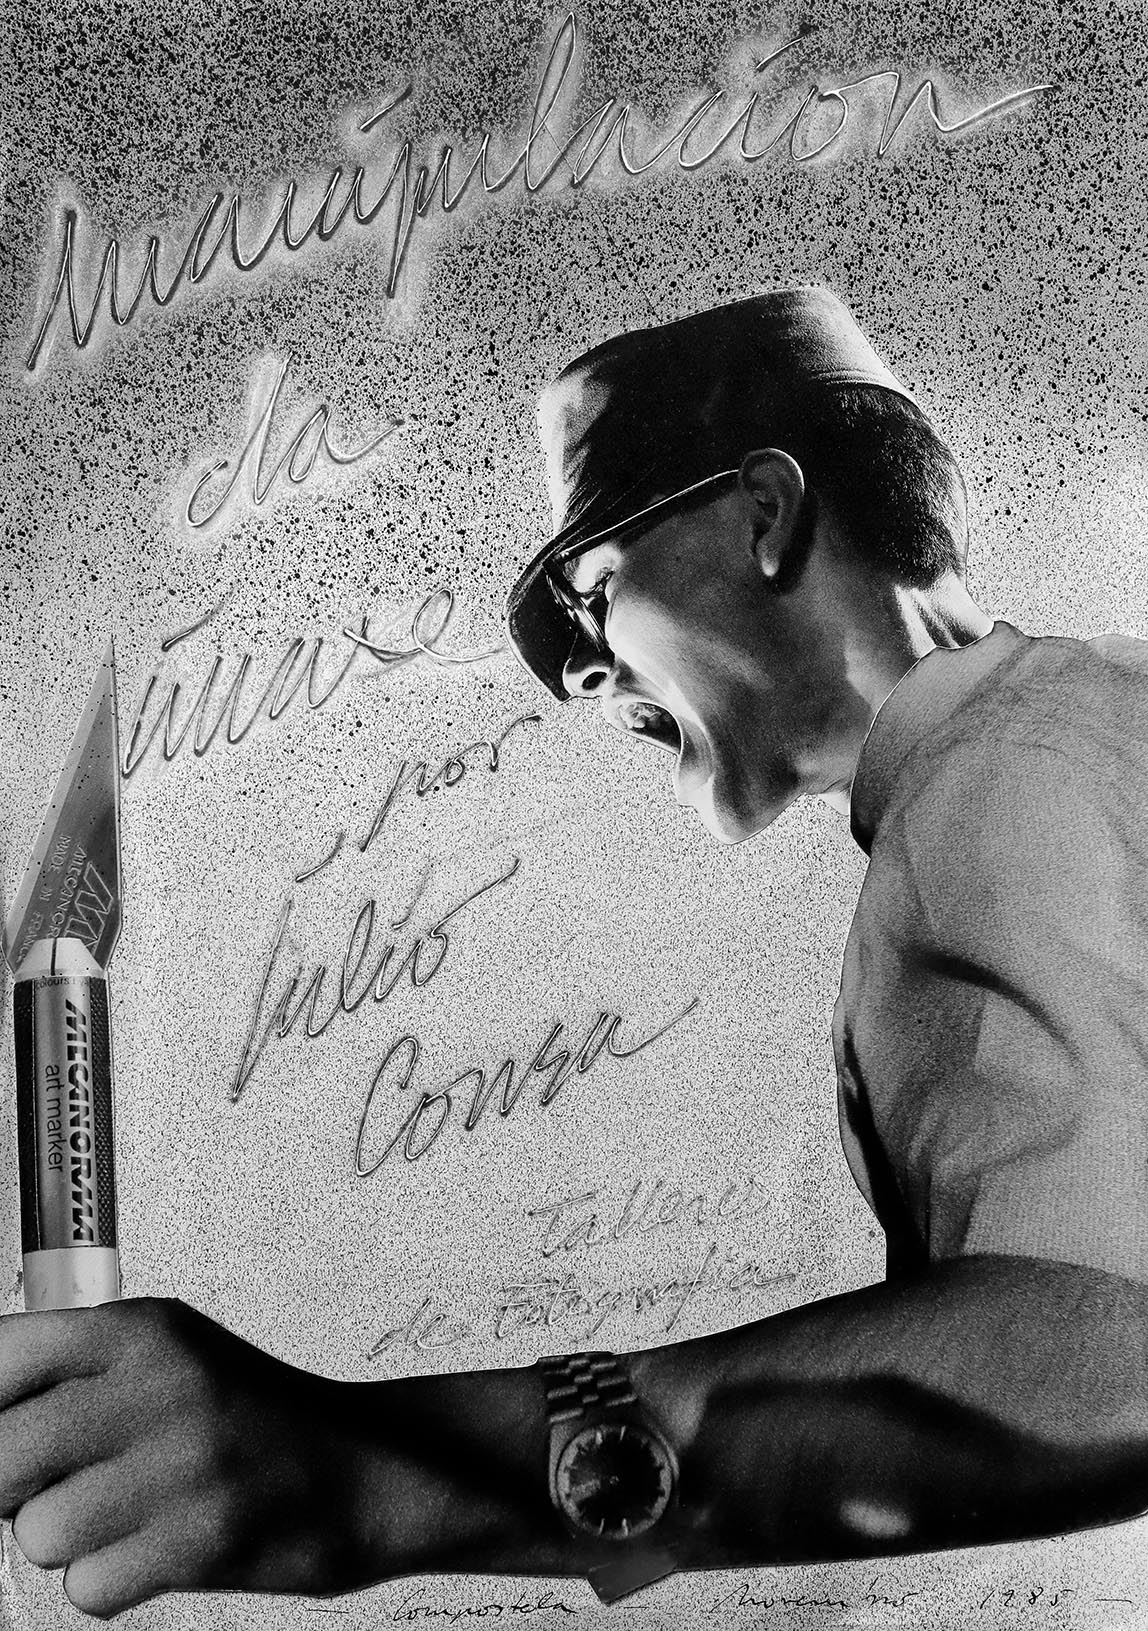 Manipulación
da
imaxe
por
Julio
Consa
Talleres
de Fotografía
MECANORMA
MADE IN FRAN
colours by
MECANORMA
art marker
— Compostela — Novembro — 1985 —